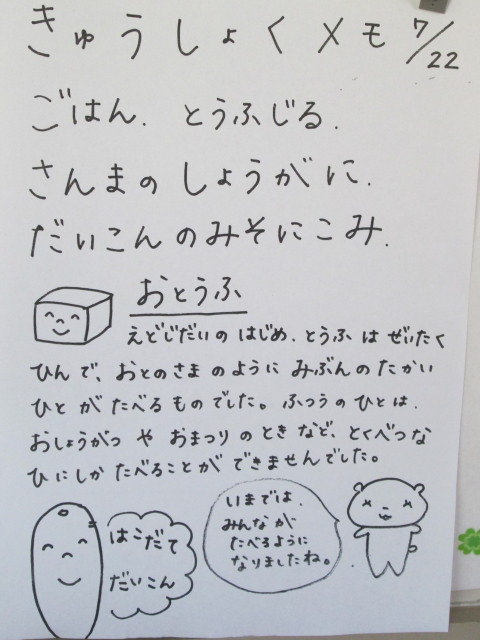 きゅうしょくメモ 7/22
ごはん. とうふじる.
さんまのしょうがに.
だいこんのみそにこみ.
おとうふ
えどじだいのはじめ. とうふはぜいたく
ひんで、おとのさまのようにみぶんのたかい
ひとがたべるものでした。ふつうのひとは.
おしょうがつやおまつりのときなど、とくべつな
ひにしかたべることができませんでした。
はこだて
だいこん
いまでは、
みんなが
たべるように
なりましたね。